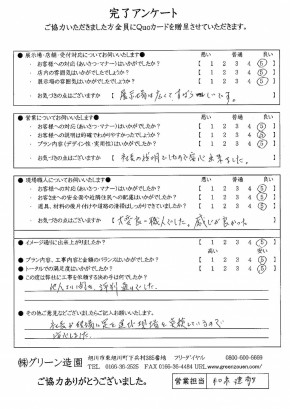 完了アンケート
ご協力いただきました方全員にQuoカードを贈呈させていただきます。
● 展示場・店舗・受付対応についてお伺いします●
悪い 普通 良い
・お客様への対応(あいさつ・マナー)はいかがでしたか?
[ 1 2 3 4 5 ]
・店内の雰囲気はいかがでしたでしょうか?
[ 1 2 3 4 5 ]
・展示場の雰囲気はいかがでしたか?
[ 1 2 3 4 5 ]
・お気づきの点はございますか
展示場は広くてすばらしいです。
● 営業についてお伺いします●
悪い 普通 良い
・お客様への対応(あいさつ・マナー)はいかがでしたか?
[ 1 2 3 4 5 ]
・お客様への説明は的確でわかりやすかったでしょうか?
[ 1 2 3 4 5 ]
・プラン内容(デザイン性・実用性)はいかがですか?
[ 1 2 3 4 5 ]
・お気づきの点はございますか
● 現場職人についてお伺いします●
悪い 普通 良い
・お客様への対応(あいさつ・マナー)はいかがでしたか?
[ 1 2 3 4 5 ]
・お客さまへの安全面や近隣住民への配慮はいかがですか?
[ 1 2 3 4 5 ]
・道具、材料の後片付けや道路の清掃はしっかりできていましたか?
[ 1 2 3 4 5 ]
・お気づきの点はございますか
大変良い職人でした。感じが良かった
● イメージ通りに出来上がりましたか?
[ 1 2 3 4 5 ]
高い 安い
● プラン内容、工事内容と金額のバランスはいかがですか?
[ 1 2 3 4 5 ]
● トータルでの満足度はいかがですか?
[ 1 2 3 4 5 ]
● この度は弊社に工事を依頼する決め手は何でしたか?
● その他ご意見などございましたらご記入お願いいたします。
㈱グリーン造園
旭川市東旭川町下兵村385番地 フリーダイヤル 0800-600-6669
TEL 0166-36-2525 FAX 0166-36-4484 URL www.greenzouen.com/
ご協力ありがとうございました。
営業担当